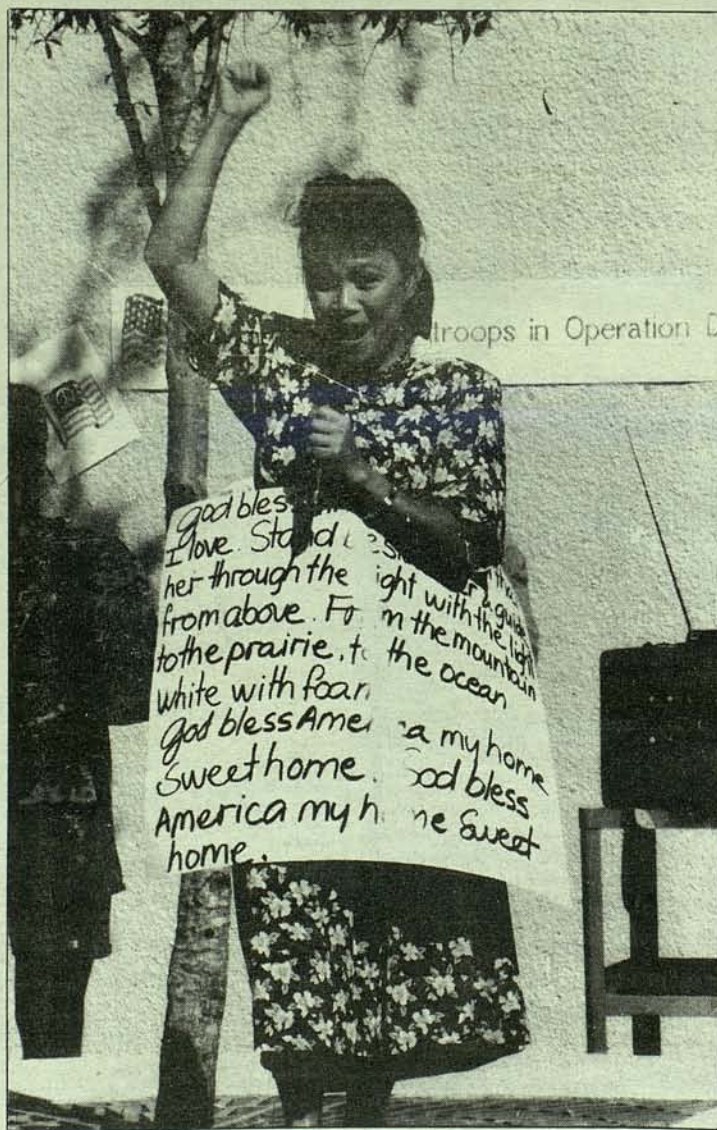 troops in Operation D
god bles
I love. Stand
her through the ight with the light
from above. Fo m the mountain
to the prairie, t the ocean
white with foam
god bless Ame ca my home
Sweet home. God bless
America my h me Sweet
home.